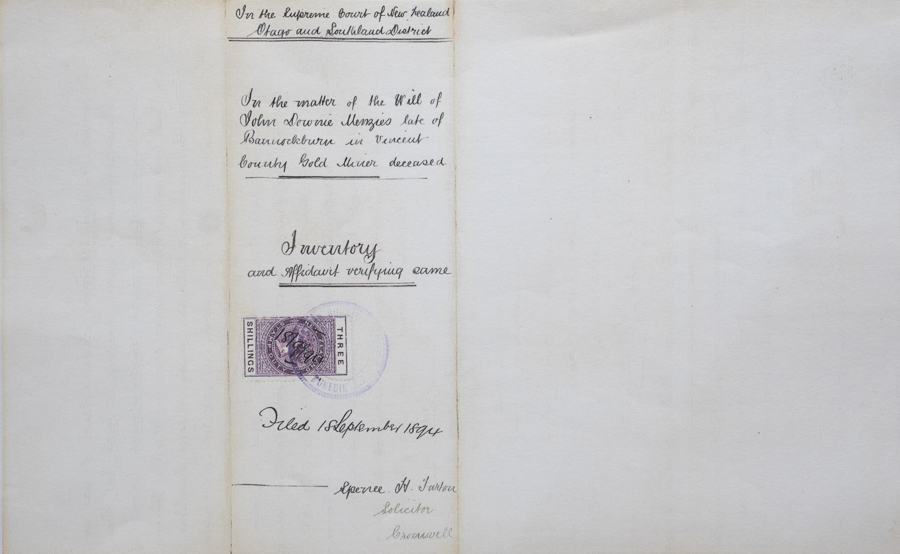 In the Supreme Court of New Zealand
Otago and Southland District
In the matter of the Will of
John Downie Menzies late of
Bannockburn in Vincent
County Gold Miner deceased
Inventory
and Affidavit verifying same
THREE
SHILLINGS
DUNEDIN
Filed 18 September 1894
Spence H. Turton
Solicitor
Cromwell